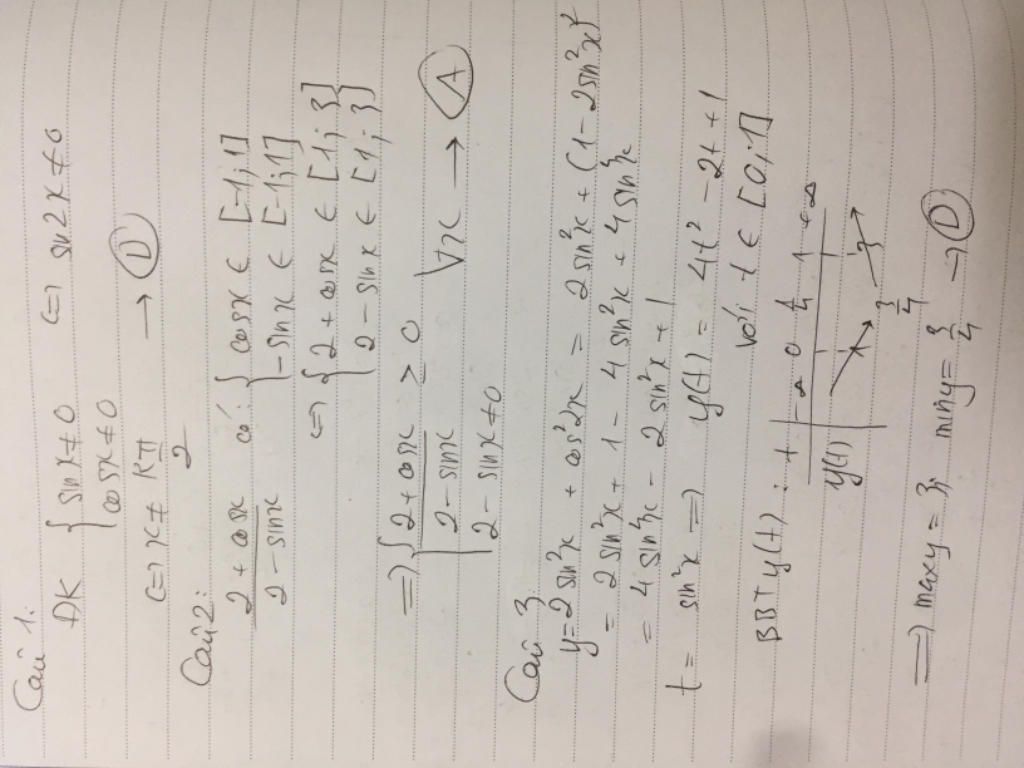 Câu 1:
ĐK { sin x ≠ 0 <=> sin 2x ≠ 0
cos x ≠ 0
<=> x ≠ Kπ/2 → (D)
Câu 2:
(2 + cos x)/(2 - sin x) có: { cos x ∈ [-1; 1]
- sin x ∈ [-1; 1]
<=> { 2 + cos x ∈ [1; 3]
2 - sin x ∈ [1; 3]
=> { (2 + cos x)/(2 - sin x) > 0 ∀x → (A)
2 - sin x ≠ 0
Câu 3
y = 2 sin²x + cos²2x = 2 sin²x + (1 - 2sin²x)²
= 2 sin²x + 1 - 4 sin²x + 4 sin⁴x
= 4 sin⁴x - 2 sin²x + 1
t = sin²x => y(t) = 4t² - 2t + 1
với t ∈ [0; 1]
BBT y(t): t -∞ 0 1/4 1 +∞
y(t) 3
3/4
=> max y = 3; min y = 3/4 → (D)